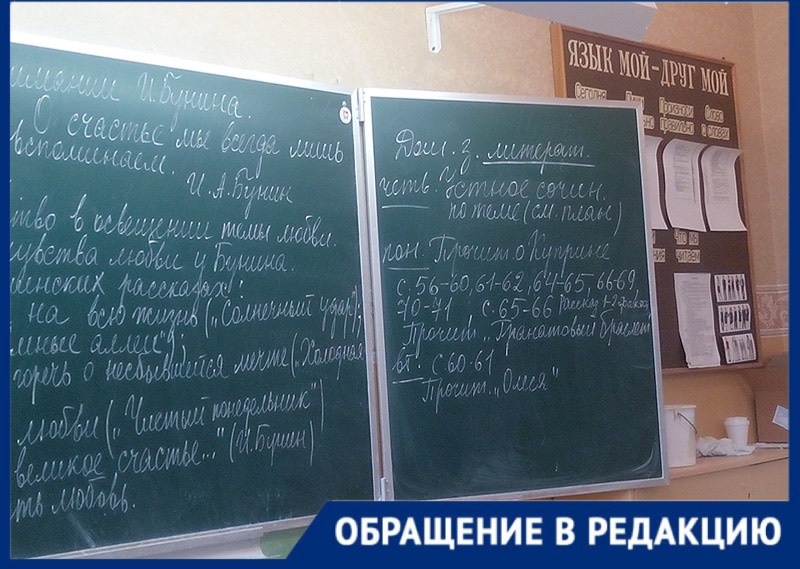 имании И. Бунина.
О счастье мы всегда лишь
вспоминаем.
И. А. Бунин
ство в освещении темы любви.
чувства любви у Бунина.
рассказах:
на всю жизнь („Солнечный удар");
мные аллеи");
горечь о несбывшейся мечте („Холодная
любви („Чистый понедельник")
великое счастье..." (И. Бунин)
ть любовь.
Дом. з. литерат.
четв. Устное сочин.
по теме (см. план)
пон. Прочит. о Куприне
с. 56-60, 61-62, 64-65, 66-69,
70-71 с. 65-66 Рассказ
Прочит. „Гранатовый браслет
вт. с. 60-61
Прочит. „Олеся"
ЯЗЫК МОЙ - ДРУГ МОЙ
Сегодня
Произноси
правильно
Слово
о словах
Что мы
читаем
ОБРАЩЕНИЕ В РЕДАКЦИЮ